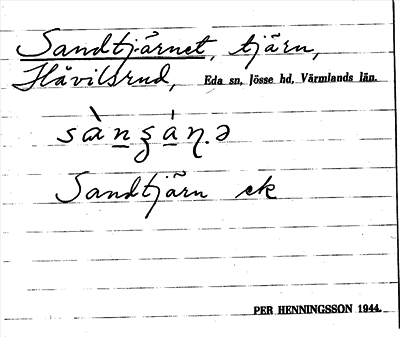 Sandtjärnet, tjärn,
Håvilsrud, Eda sn, Jösse hd, Värmlands län.
sànʒáɳ.ə
Sandtjärn ek
PER HENNINGSSON 1944.